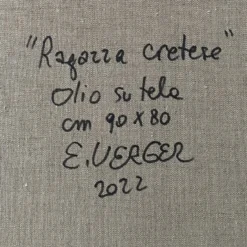 "Ragazza cretese"
Olio su tela
cm 90 x 80
E. VERGER
2022